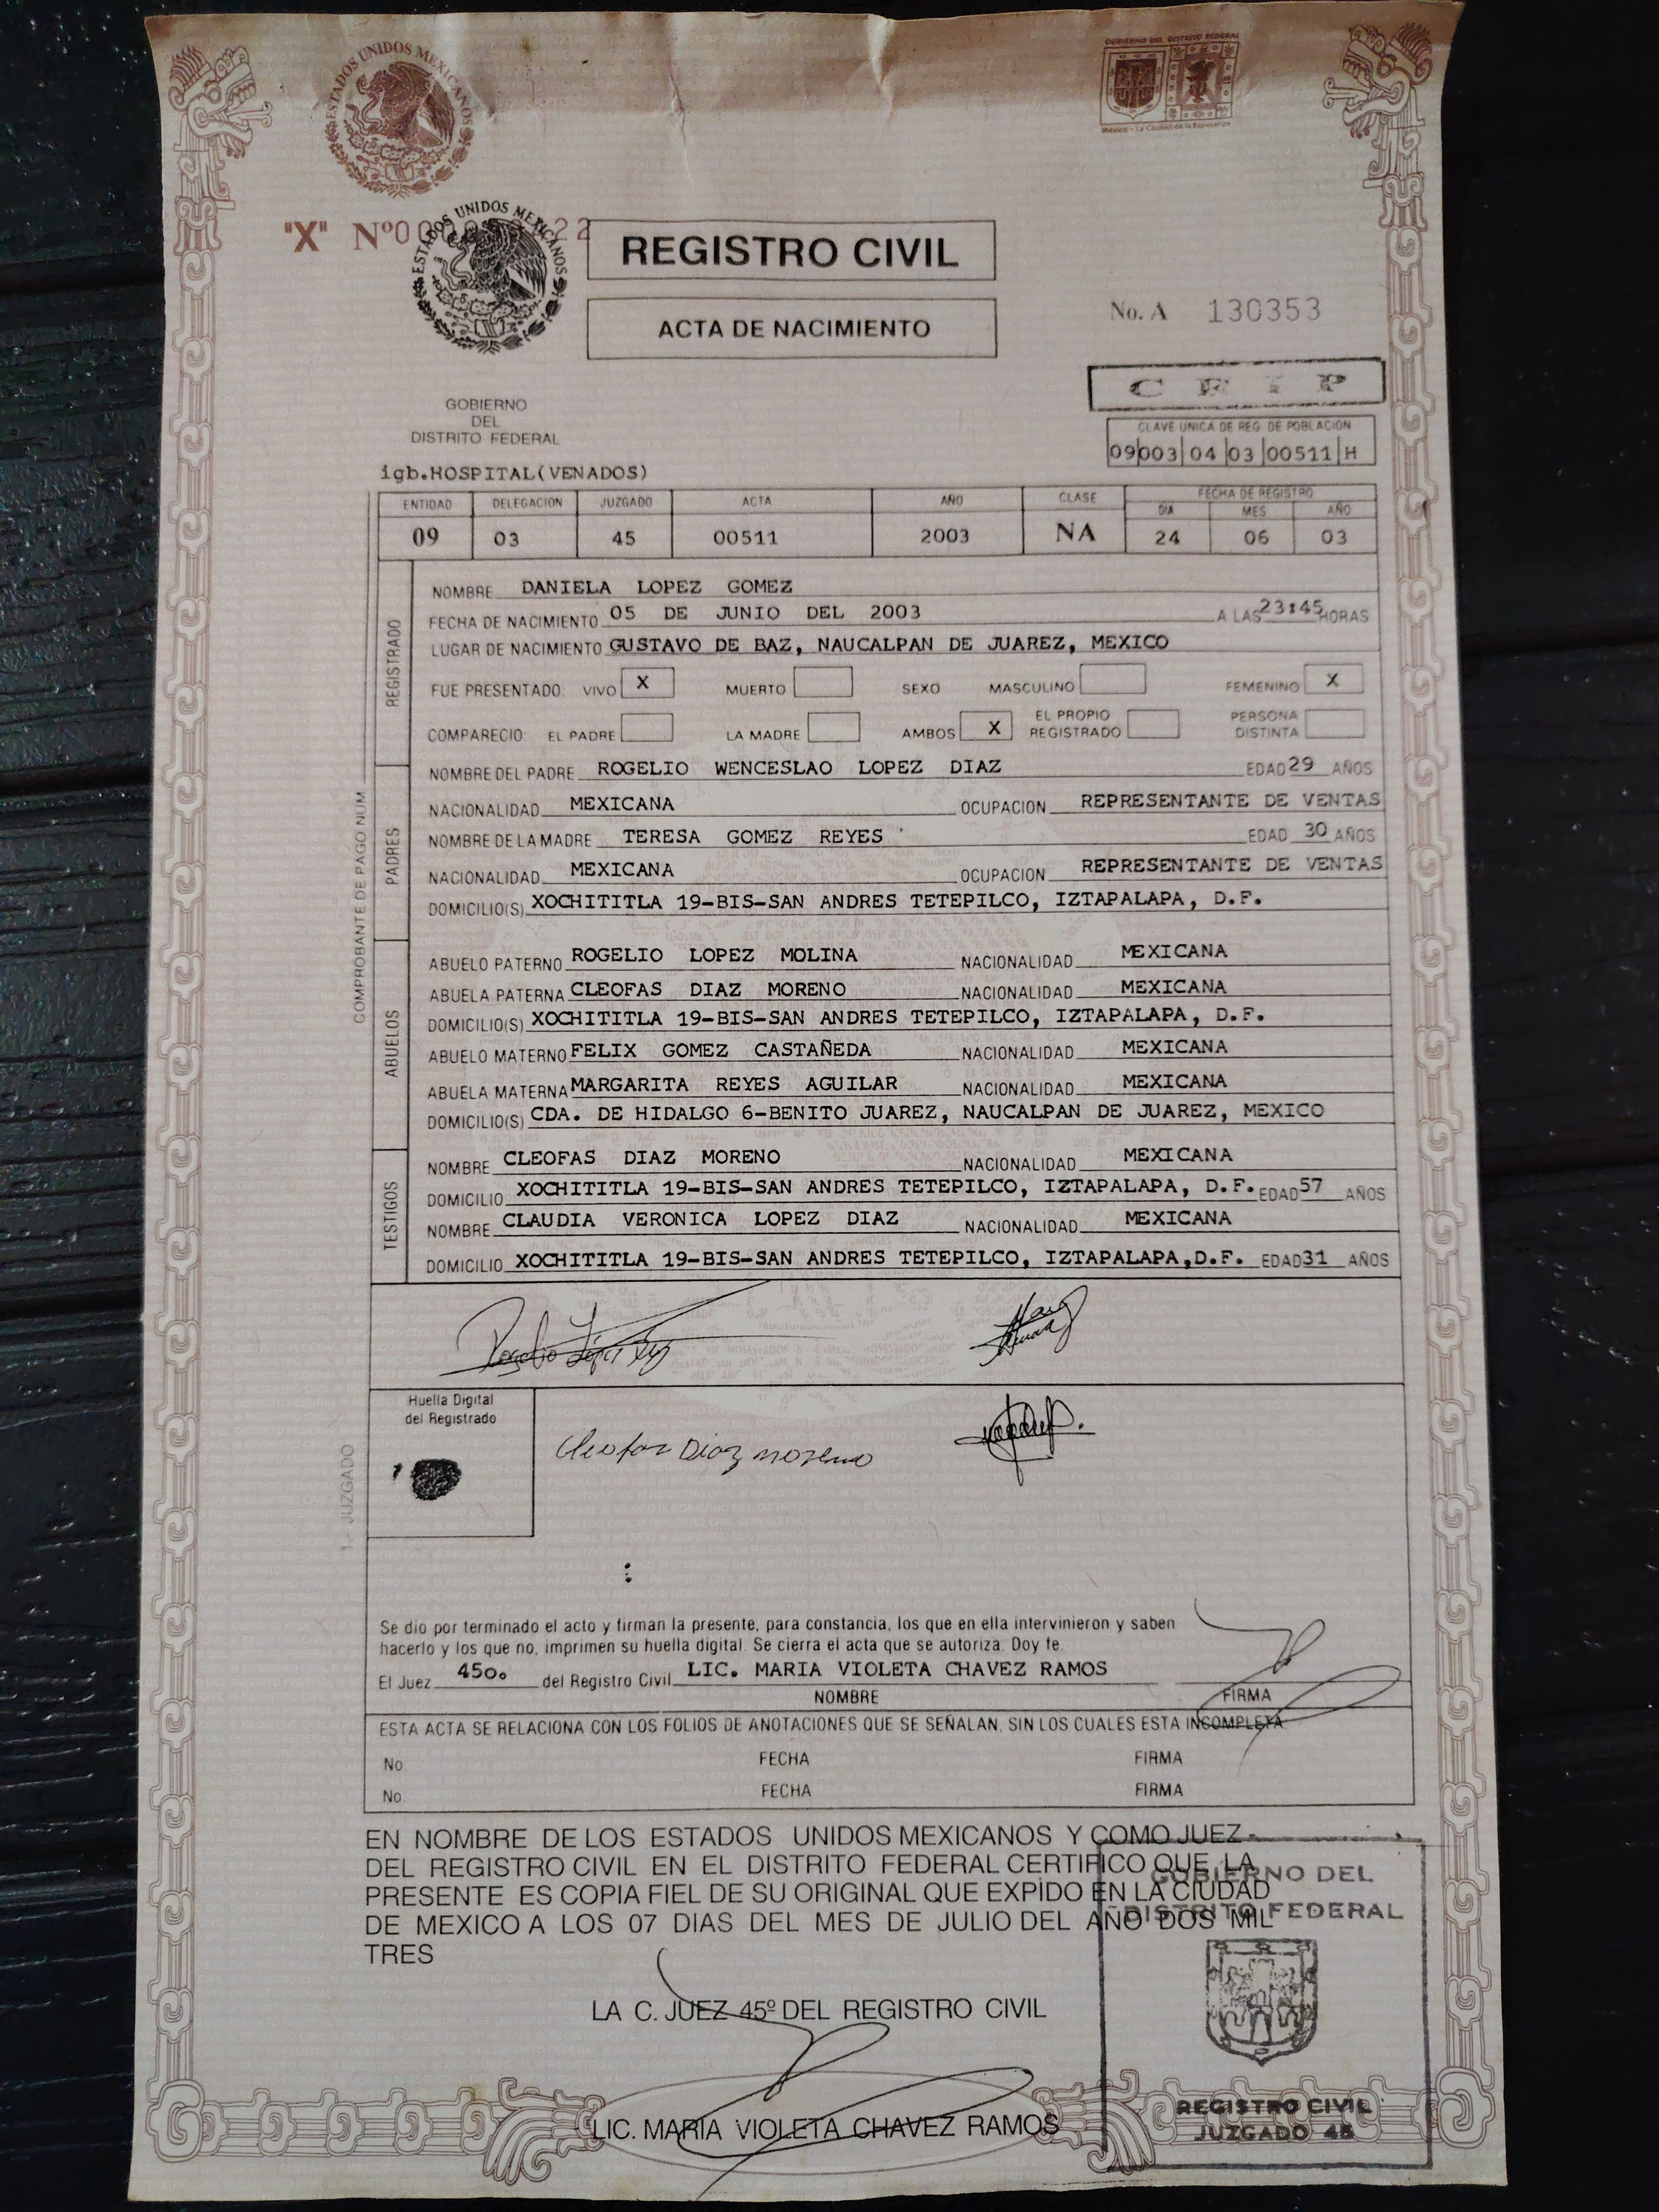 ESTADOS UNIDOS MEXICANOS
GOBIERNO DEL DISTRITO FEDERAL
México - La Ciudad de la Esperanza
"X" Nº
ESTADOS UNIDOS MEXICANOS
REGISTRO CIVIL
ACTA DE NACIMIENTO
No. A 130353
C R I P
GOBIERNO
DEL
DISTRITO FEDERAL
CLAVE UNICA DE REG. DE POBLACIÓN
09 003 04 03 00511 H
igb.HOSPITAL(VENADOS)
ENTIDAD DELEGACION JUZGADO ACTA AÑO CLASE FECHA DE REGISTRO
DIA MES AÑO
09 03 45 00511 2003 NA 24 06 03
REGISTRADO
NOMBRE DANIELA LOPEZ GOMEZ
FECHA DE NACIMIENTO 05 DE JUNIO DEL 2003 A LAS 23:45 HORAS
LUGAR DE NACIMIENTO GUSTAVO DE BAZ, NAUCALPAN DE JUAREZ, MEXICO
FUE PRESENTADO: VIVO X MUERTO SEXO MASCULINO FEMENINO X
COMPARECIO: EL PADRE LA MADRE AMBOS X EL PROPIO REGISTRADO PERSONA DISTINTA
PADRES
NOMBRE DEL PADRE ROGELIO WENCESLAO LOPEZ DIAZ EDAD 29 AÑOS
NACIONALIDAD MEXICANA OCUPACION REPRESENTANTE DE VENTAS
NOMBRE DE LA MADRE TERESA GOMEZ REYES EDAD 30 AÑOS
NACIONALIDAD MEXICANA OCUPACION REPRESENTANTE DE VENTAS
DOMICILIO(S) XOCHITITLA 19-BIS-SAN ANDRES TETEPILCO, IZTAPALAPA, D.F.
COMPROBANTE DE PAGO NUM.
ABUELOS
ABUELO PATERNO ROGELIO LOPEZ MOLINA NACIONALIDAD MEXICANA
ABUELA PATERNA CLEOFAS DIAZ MORENO NACIONALIDAD MEXICANA
DOMICILIO(S) XOCHITITLA 19-BIS-SAN ANDRES TETEPILCO, IZTAPALAPA, D.F.
ABUELO MATERNO FELIX GOMEZ CASTAÑEDA NACIONALIDAD MEXICANA
ABUELA MATERNA MARGARITA REYES AGUILAR NACIONALIDAD MEXICANA
DOMICILIO(S) CDA. DE HIDALGO 6-BENITO JUAREZ, NAUCALPAN DE JUAREZ, MEXICO
TESTIGOS
NOMBRE CLEOFAS DIAZ MORENO NACIONALIDAD MEXICANA
DOMICILIO XOCHITITLA 19-BIS-SAN ANDRES TETEPILCO, IZTAPALAPA, D.F. EDAD 57 AÑOS
NOMBRE CLAUDIA VERONICA LOPEZ DIAZ NACIONALIDAD MEXICANA
DOMICILIO XOCHITITLA 19-BIS-SAN ANDRES TETEPILCO, IZTAPALAPA,D.F. EDAD 31 AÑOS
Rogelio López
Huella Digital
del Registrado
Cleofas Diaz moreno
1.- JUZGADO
Se dio por terminado el acto y firman la presente, para constancia, los que en ella intervinieron y saben
hacerlo y los que no, imprimen su huella digital. Se cierra el acta que se autoriza. Doy fe.
El Juez 45Oo del Registro Civil LIC. MARIA VIOLETA CHAVEZ RAMOS
NOMBRE FIRMA
ESTA ACTA SE RELACIONA CON LOS FOLIOS DE ANOTACIONES QUE SE SEÑALAN, SIN LOS CUALES ESTA INCOMPLETA.
No. FECHA FIRMA
No. FECHA FIRMA
EN NOMBRE DE LOS ESTADOS UNIDOS MEXICANOS Y COMO JUEZ-
DEL REGISTRO CIVIL EN EL DISTRITO FEDERAL CERTIFICO QUE LA
PRESENTE ES COPIA FIEL DE SU ORIGINAL QUE EXPIDO EN LA CIUDAD
DE MEXICO A LOS 07 DIAS DEL MES DE JULIO DEL AÑO DOS MIL
TRES
GOBIERNO DEL
DISTRITO FEDERAL
LA C. JUEZ 45º DEL REGISTRO CIVIL
LIC. MARIA VIOLETA CHAVEZ RAMOS
REGISTRO CIVIL
JUZGADO 45